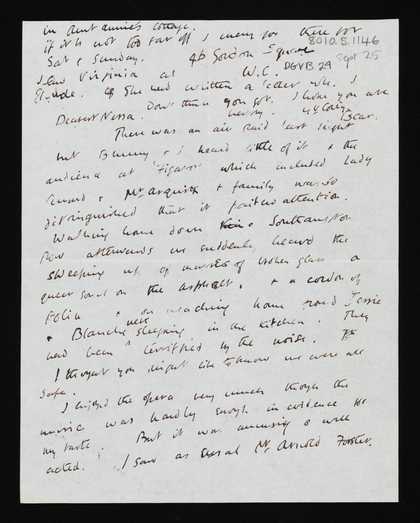 in Aunt Annie's cottage.
if it is not too far off I may go there for
Sat & Sunday.
46 Gordon Square
8010.5.1146
I saw Virginia at
W.C.
DGVB 29
Sept 25
She had written a letter
Dearest Nessa.
I hope you are
There was an air raid last night
but Bunny & I heard little of it & the
audience at 'Figaro' which included Lady
Cunard & Mr Asquith & family was so
distinguished that it paid no attention.
Walking home down Southampton
Row afterwards we suddenly heard the
sweeping up of masses of broken glass a
queer sound on the asphalt. & a cordon of
Police & on reaching home found Jessie
& Blanche were sleeping in the kitchen. They
had been terrified by the noise.
I thought you might like to know we were all
safe.
I enjoyed the opera very much though the
music was hardly enough in evidence for
my taste. But it was amusing & well
acted. I saw as usual Mr Arnold Forster.